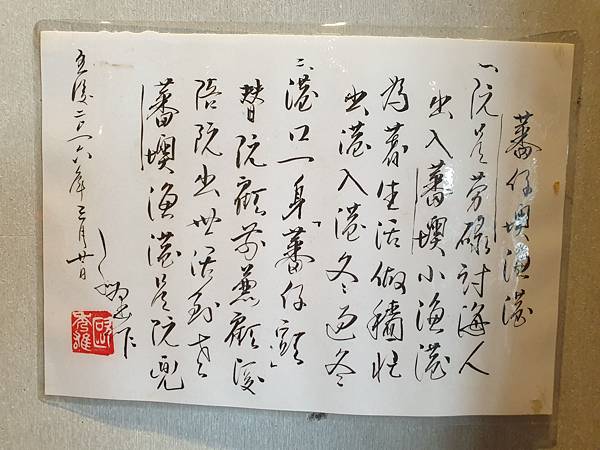 蕃仔墺漁港
一、阮是勞碌討海人
出入蕃墺小漁港
為著生活做穡忙
出港入港冬過冬
二、港口一身「蕃仔顧」
替阮顧前兼顧後
陪阮出世活到老
蕃墺漁港是阮兜
主後二〇一六年三月廿日